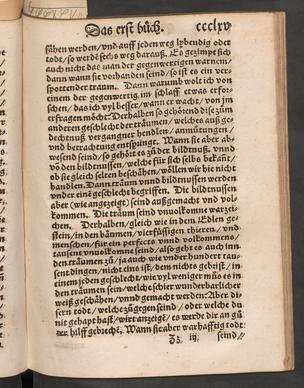 Das erst büch. ccclxv
sähen werden / vnd auff jeden weg lybendig oder
tode / so werdē stehs weg darauß. Es gezimpt sich
auch nicht das man der gegenwertigen warnem /
dann wann sie vorhanden seind / so ist es ein ver-
spottender traum. Dann warumb wolt ich von
einem der gegenwertig im schlaff etwas erfor-
schen / das ich vyl besser / wann er wachr / von jm
erfragen möcht? Derhalben so gehörend dise zům
anderen geschlecht der träumen / welches auß ge-
dechtnuß vergangner henden / anmůtungen /
vnd betrachtung entspringt. Wann sie aber ab-
wesend seind / so gehört es zů der bildtnuß. vnnd
von den bildtnussen / welche für sich selbs bekañt /
ob sie gleich selten beschähen / wöllen wir hie nicht
handlen. Dann träum vnnd bildtnussen werden
vnder eins geschlecht begriffen. Die bildtnussen
aber (wie angezeigt) seind außgemacht vnd vol-
kommen. Die träum seind vnuolkomne warzei-
chen. Derhalben / gleich wie in dem Edlen ge-
stein / in den bäumen / vierfüssigen thieren / vnd
menschen / für ein perfecto vnnd volkommens /
tausent vnuolkomne seind / also geht es auch inn
den träumen zů / ja auch wie vnder hundert tau-
sent dingen / nicht eins ist / dem nichts gebrist / in
einem jeden geschlecht / wie vyl weniger můß es in
den träumen sein / welche schier wunderbarlicher
weiß geschähen / vnnd gemacht werden? Aber di-
sern todt / welche zůgegen seind / oder welche du
nit gehapt hast / wirt anzeigt / es werde dir an gů-
ter hilff gebrechē. Wann sie aber warhafftig todt
Zz iij seind /